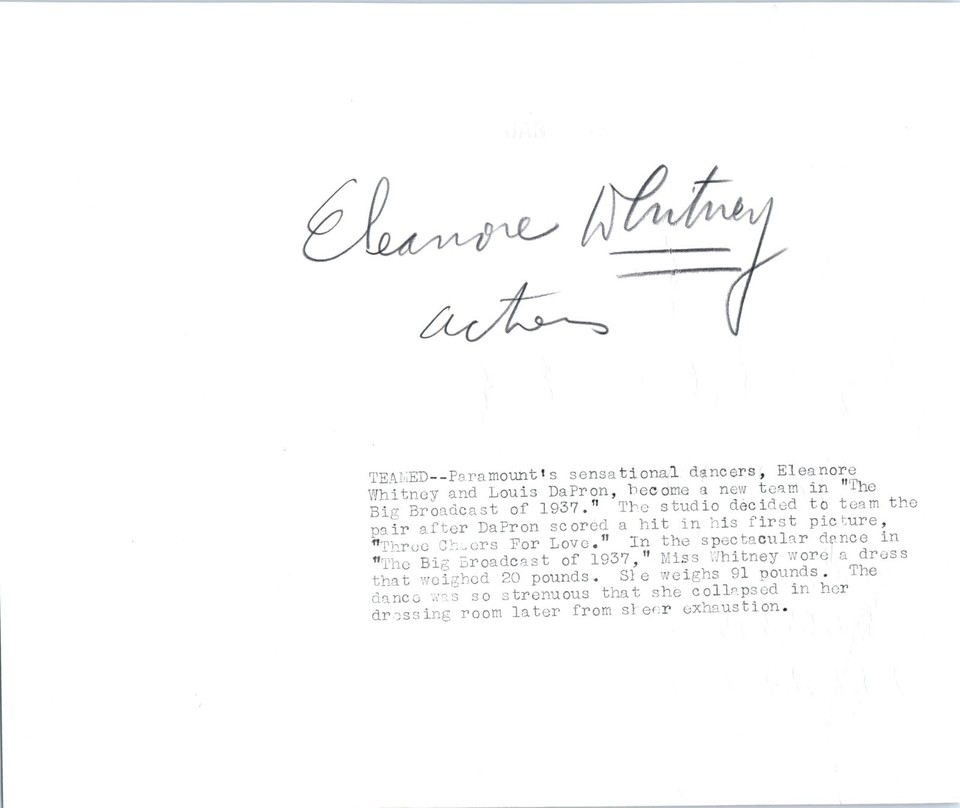 Eleanore Whitney
actress
TEAMED--Paramount's sensational dancers, Eleanore
Whitney and Louis DaPron, become a new team in "The
Big Broadcast of 1937." The studio decided to team the
pair after DaPron scored a hit in his first picture,
"Three Cheers For Love." In the spectacular dance in
"The Big Broadcast of 1937," Miss Whitney wore a dress
that weighed 20 pounds. She weighs 91 pounds. The
dance was so strenuous that she collapsed in her
dressing room later from sheer exhaustion.